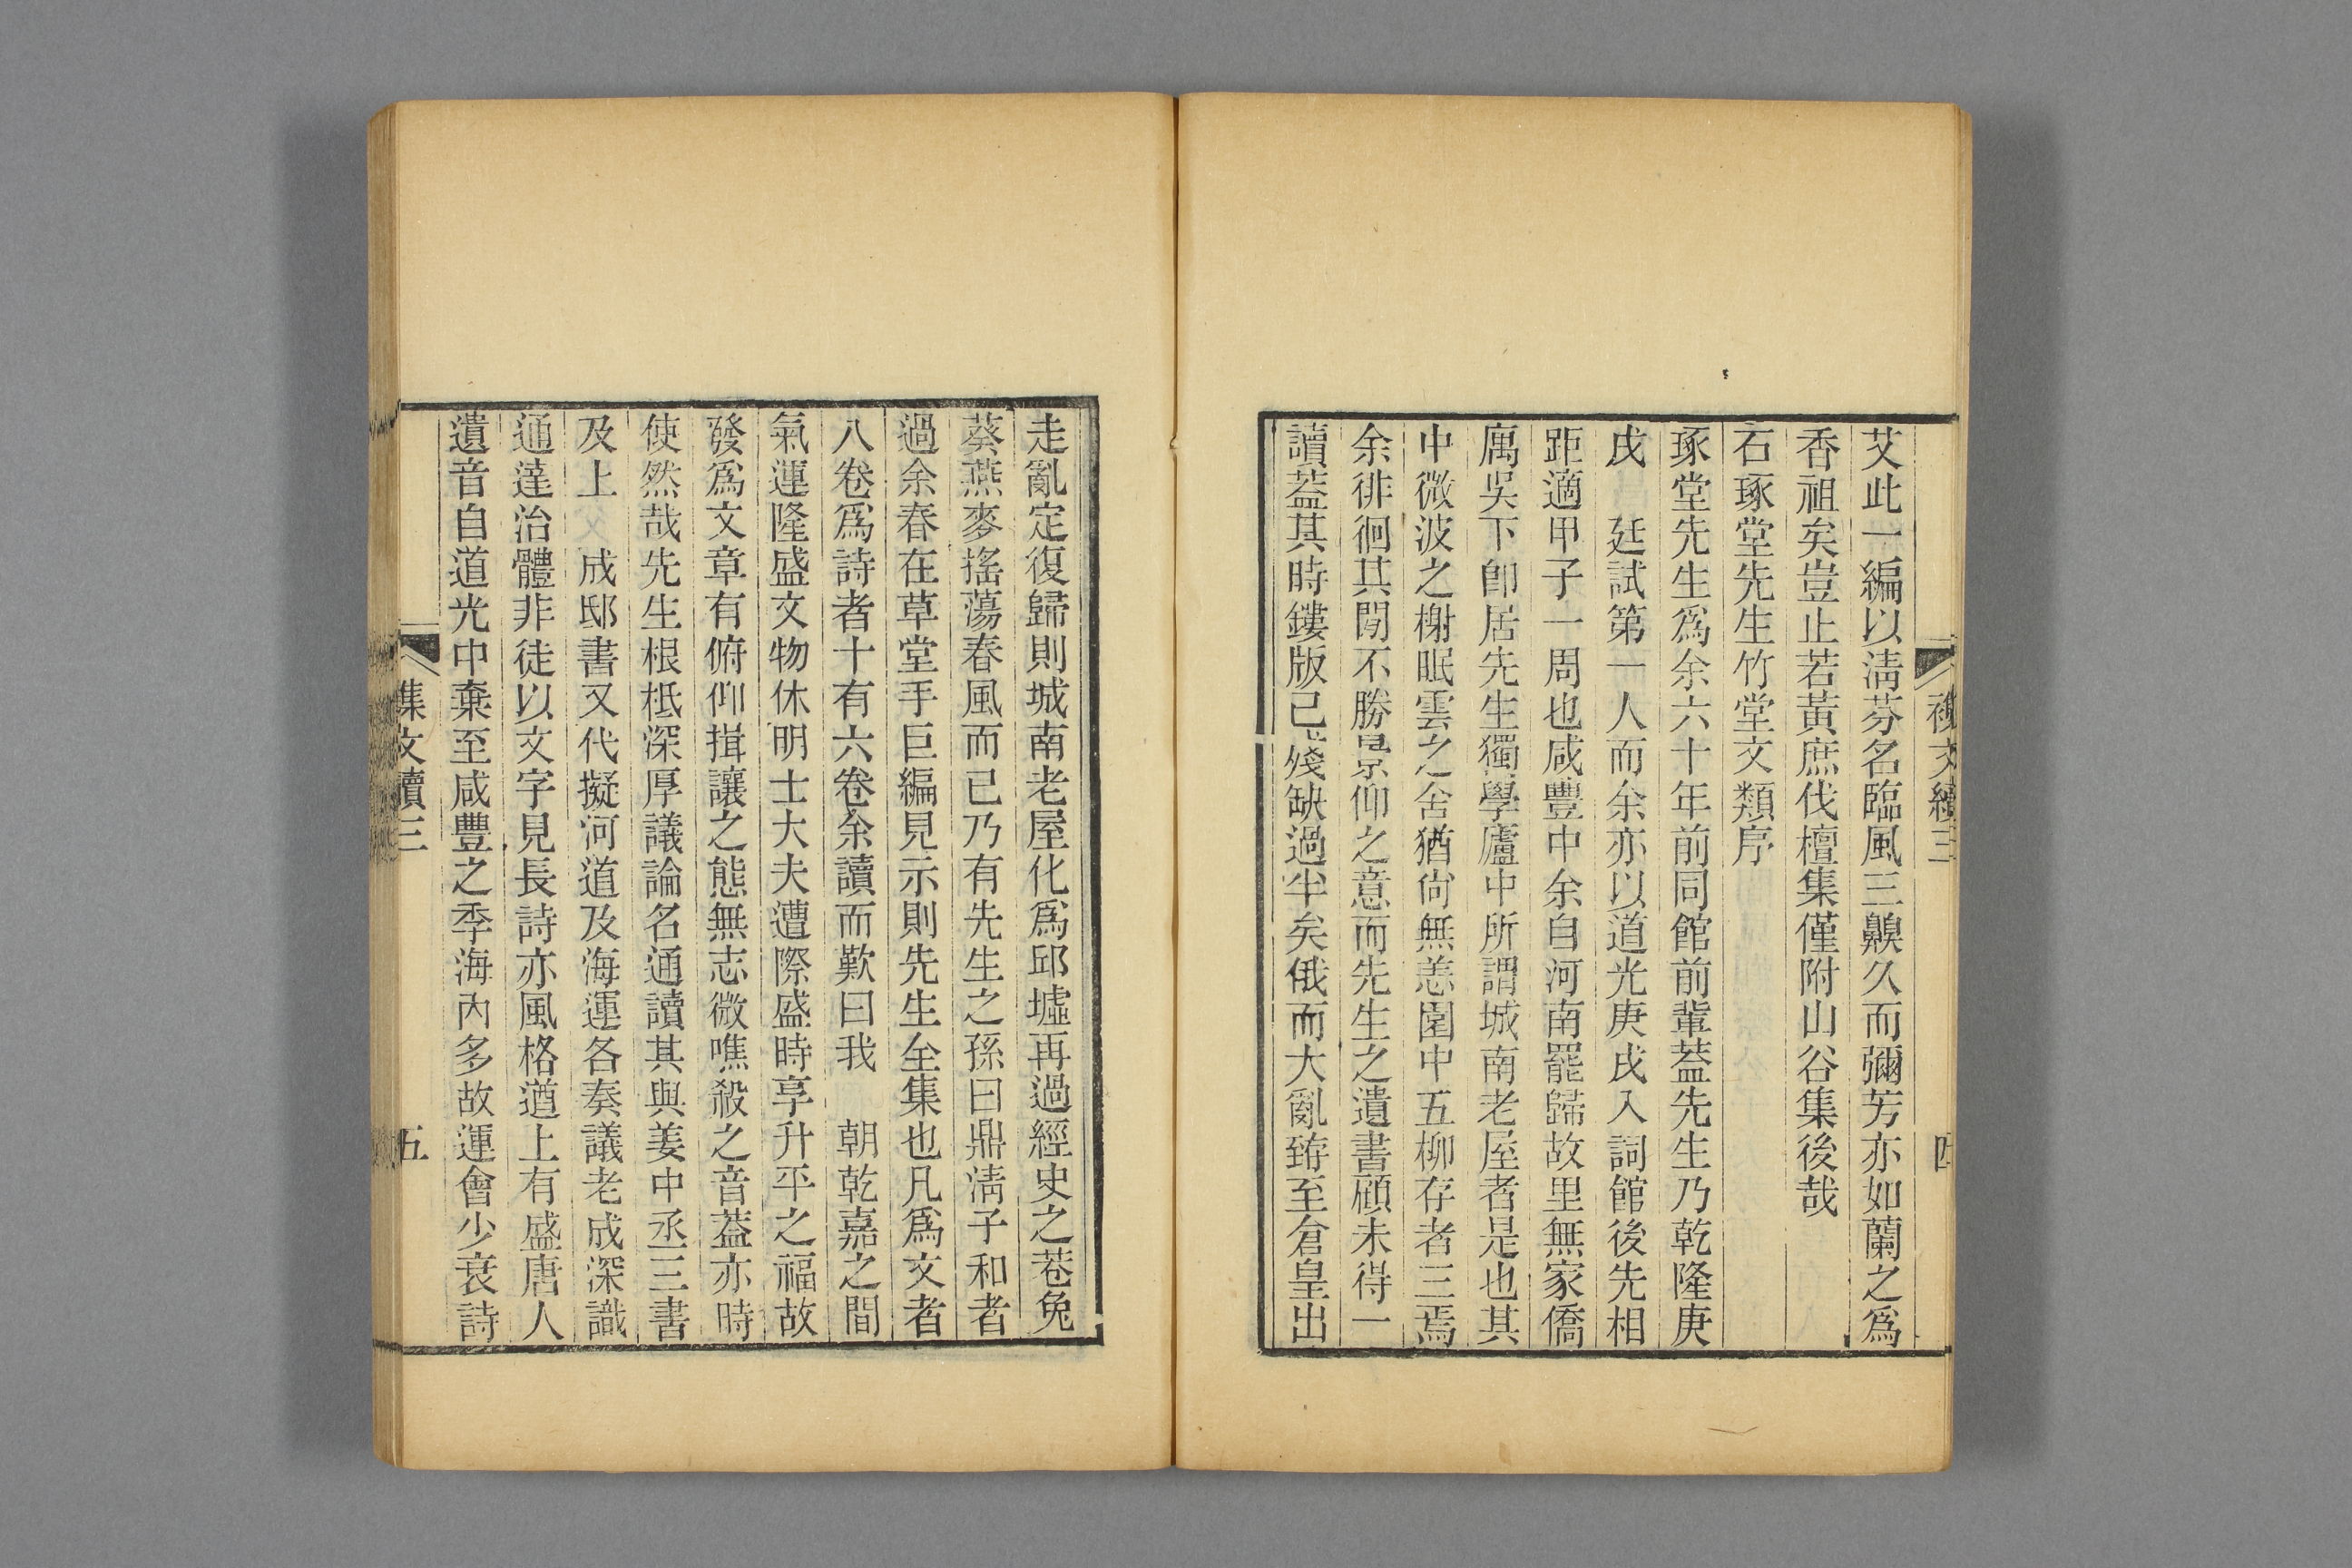 艾此一編以淸芬名臨風三齅久而彌芳亦如蘭之爲
香祖矣豈止若黃庶伐檀集僅附山谷集後哉
石琢堂先生竹堂文類序
琢堂先生爲余六十年前同館前輩葢先生乃乾隆庚
戌　廷試第一人而余亦以道光庚戌入詞館後先相
距適甲子一周也咸豐中余自河南罷歸故里無家僑
厲吳下卽居先生獨學廬中所謂城南老屋者是也其
中微波之榭眠雲之舍猶尙無恙園中五柳存者三焉
余徘徊其閒不勝景仰之意而先生之遺書顧未得一
讀葢其時鏤版已殘缺過半矣俄而大亂臻至倉皇出
走亂定復歸則城南老屋化爲邱墟再過經史之巷兔
葵燕麥搖蕩春風而已乃有先生之孫曰鼎淸子和者
過余春在草堂手巨編見示則先生全集也凡爲文者
八卷爲詩者十有六卷余讀而歎曰我　朝乾嘉之間
氣運隆盛文物休明士大夫遭際盛時享升平之福故
發爲文章有俯仰揖讓之態無志微噍殺之音葢亦時
使然哉先生根柢深厚議論名通讀其與姜中丞三書
及上　成邸書又代擬河道及海運各奏議老成深識
通達治體非徒以文字見長詩亦風格遒上有盛唐人
遺音自道光中棄至咸豐之季海內多故運會少衰詩
集文續三
五